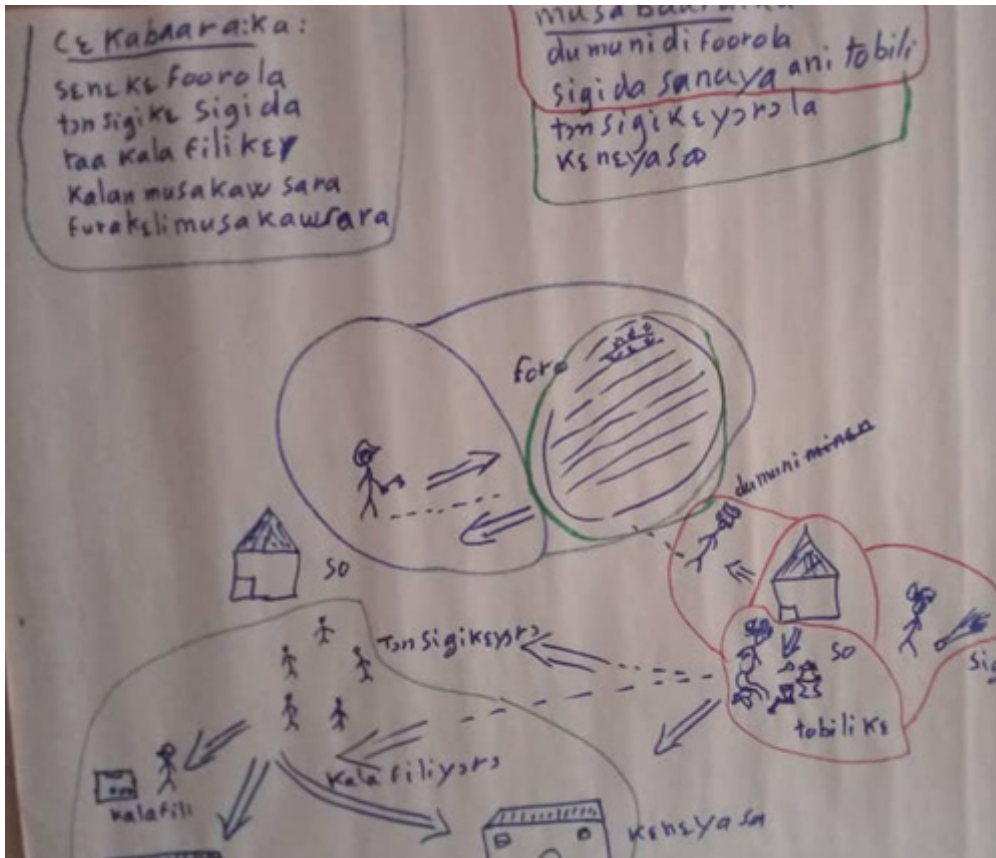 cɛ Kabaara:Ka:
sɛnɛ Kɛ foorola
tɔn sigi Kɛ sigida
taa Kala filikɛy
Kalan musakaw sara
furakɛli musakaw sara
musa baara:ka
dumuni di foorola
sigida sanuya ani tobili
tɔn sigi Kɛ yɔrɔ la
Kɛnɛyaso
foro
dumuni minɛn
so
Tɔn sigikɛyɔrɔ
so
Sig
tobili Kɛ
Kala filiyɔrɔ
Kalafili
Kɛnɛyaso